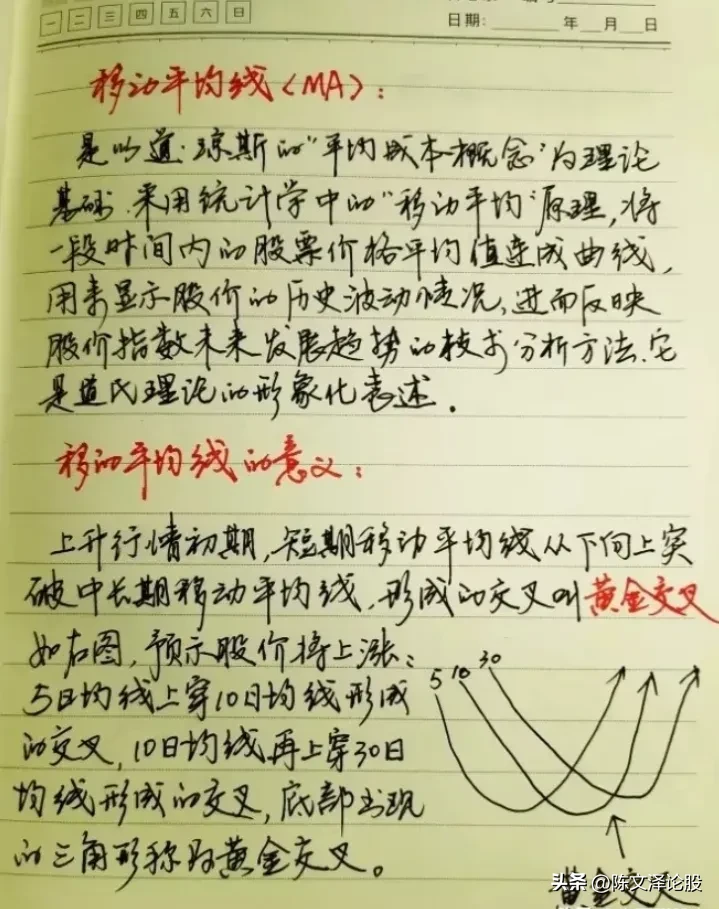 一 二 三 四 五 六 日
日期: 年 月 日
移动平均线(MA):
是以道·琼斯的"平均成本概念"为理论
基础.采用统计学中的"移动平均"原理,将
一段时间内的股票价格平均值连成曲线,
用来显示股价的历史波动情况,进而反映
股价指数未来发展趋势的技术分析方法.它
是道氏理论的形象化表述.
移动平均线的意义:
上升行情初期,短期移动平均线从下向上突
破中长期移动平均线,形成的交叉叫黄金交叉
如右图,预示股价将上涨:
5日均线上穿10日均线形成
的交叉,10日均线再上穿30日
均线形成的交叉,底部出现
的三角形称为黄金交叉。
5 10 30
黄金交叉
头条 @陈文泽论股